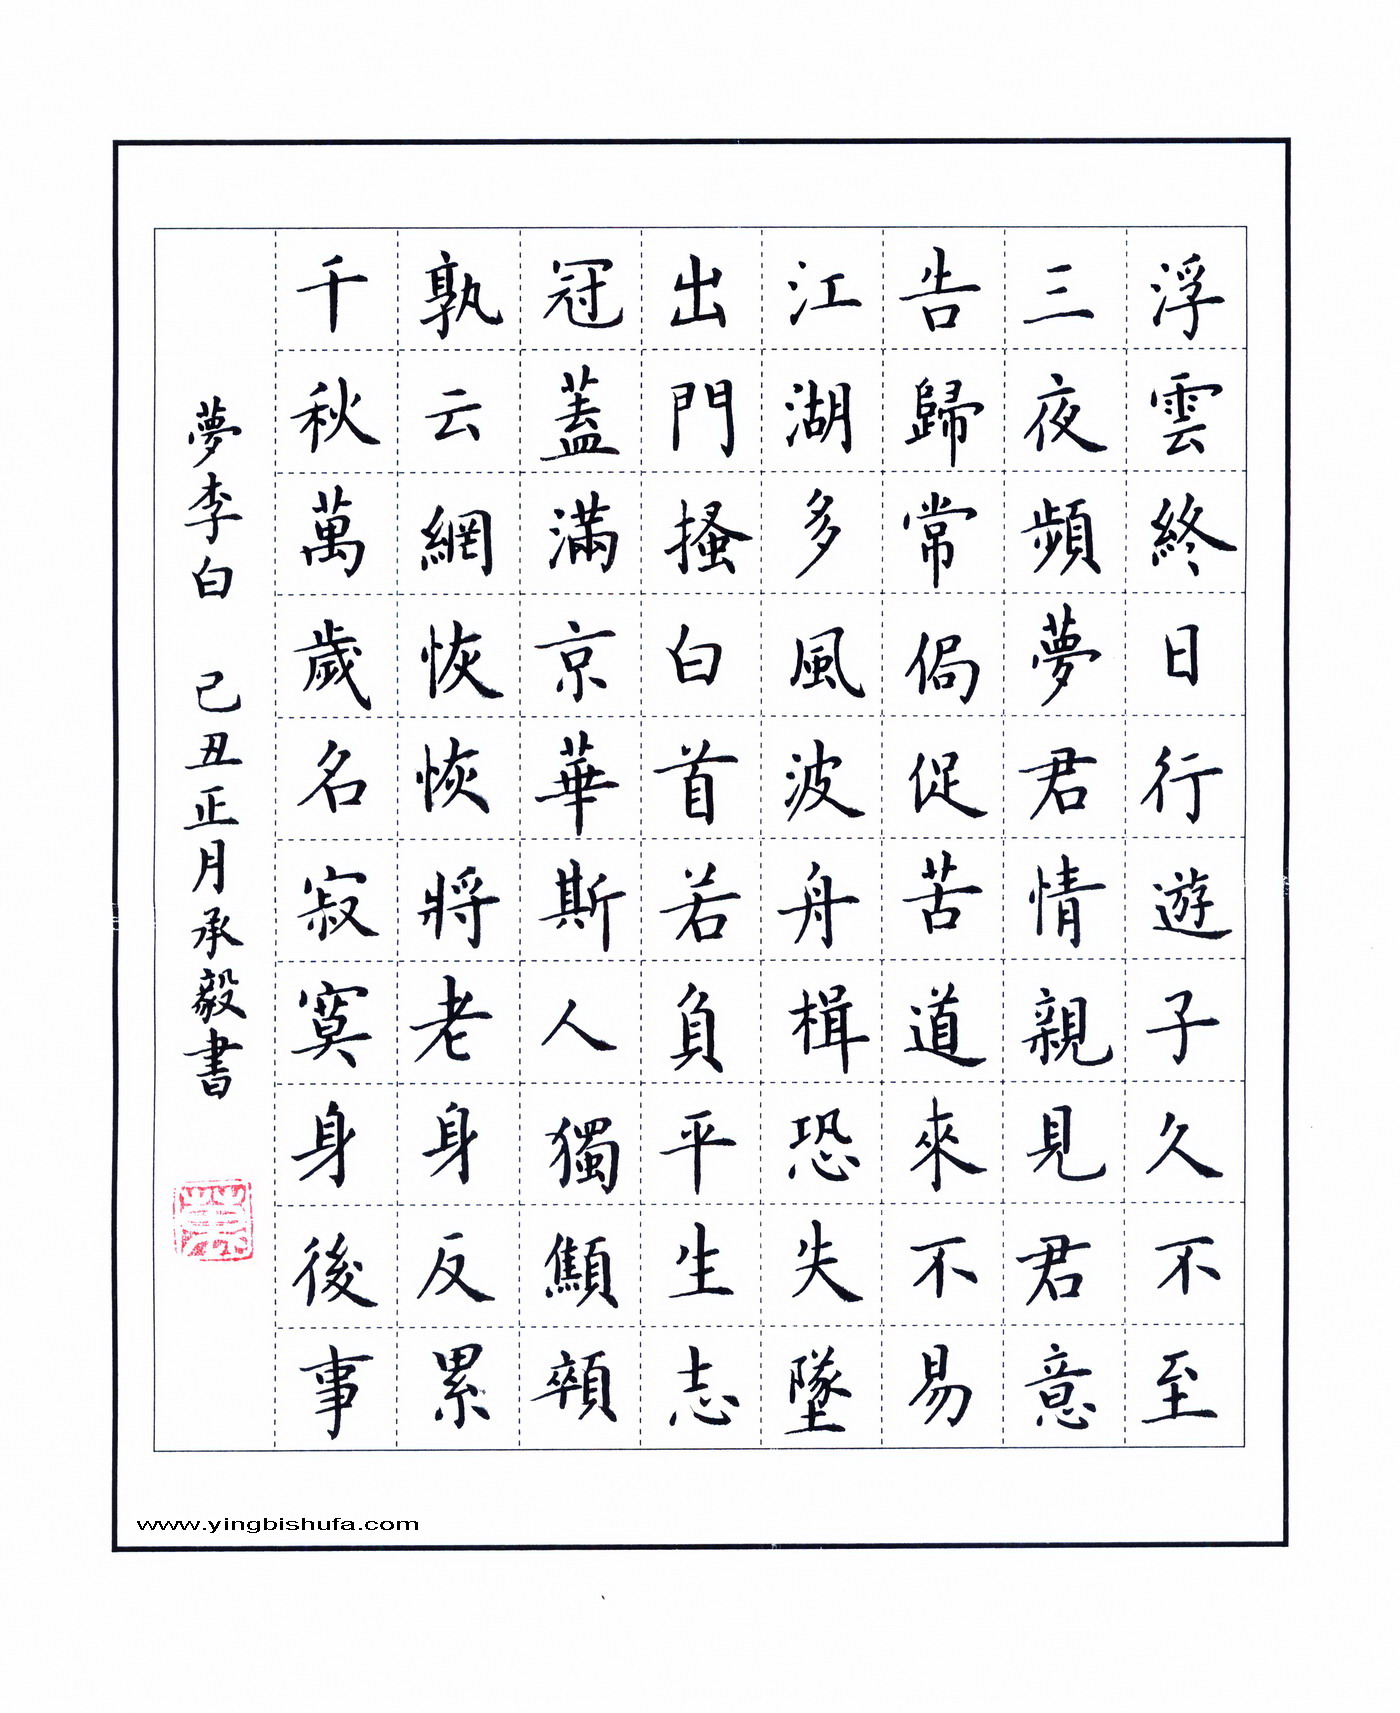 浮雲終日行遊子久不至
三夜頻夢君情親見君意
告歸常侷促苦道來不易
江湖多風波舟楫恐失墜
出門搔白首若負平生志
冠蓋滿京華斯人獨顦顇
孰云網恢恢將老身反累
千秋萬歲名寂寞身後事
夢李白 己丑正月承毅書
www.yingbishufa.com